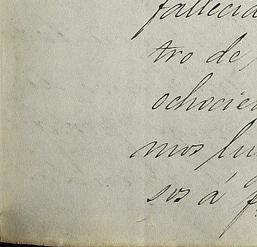 fallecid
tro de
ochocie
mos lu
sos á